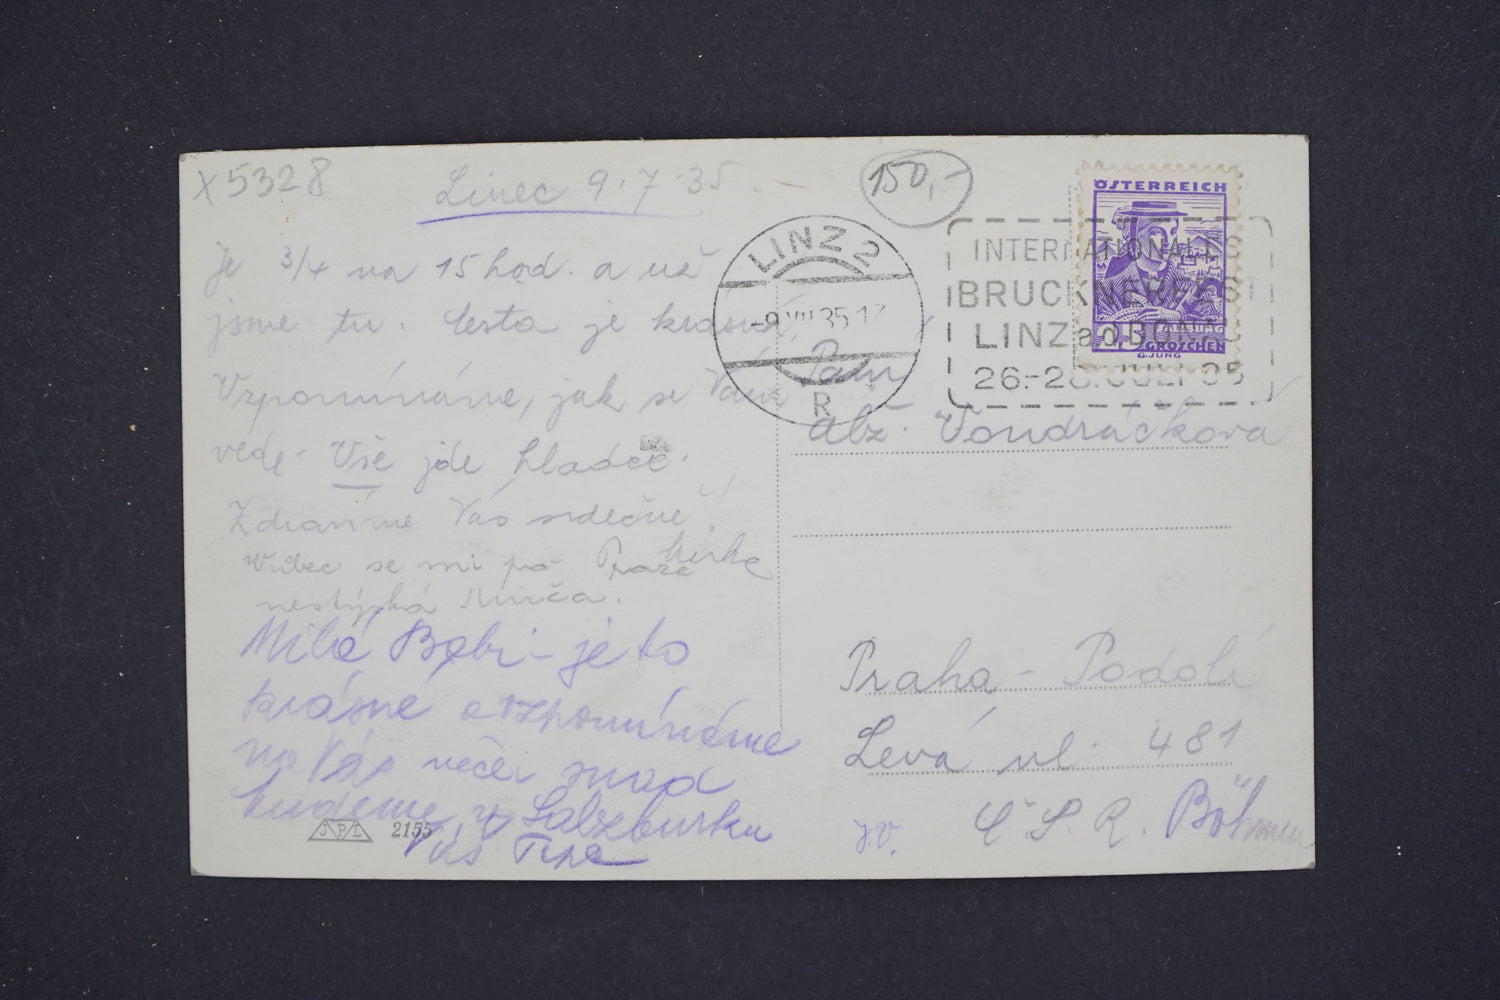 X5328
Linec 9.7.35
150,-
Je 3/4 na 15 hod. a už
jsme tu. Cesta je krásná,
Vzpomínáme, jak se Vám
vede. Vše jde hladce.
Zdravíme Vás srdečně!
Mirka
Vůbec se mi po Praze
nestýská Mirča.
Milá Bebi - je to
krásné a vzpomínáme
na Vás večer snad
budeme v Salzburku
Vás
JPL 2155
LINZ 2
-9.VII.35 17
R
INTERNATIONALES
BRUCKNERFEST
LINZ a.D.
26.-28. JULI 35
ÖSTERREICH
SALZBURG
GROSCHEN
G.JUNG
Paní
Alž. Vondráčková
Praha - Podolí
Levá ul. 481
Č S. R. Böhmen
J.V.